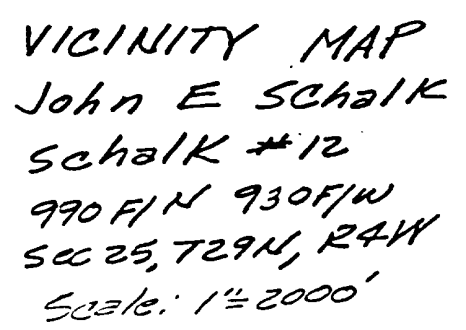 VICINITY MAP
John E Schalk
Schalk #12
990 F/N 930F/W
Sec 25, T29N, R4W
Scale: 1"=2000'